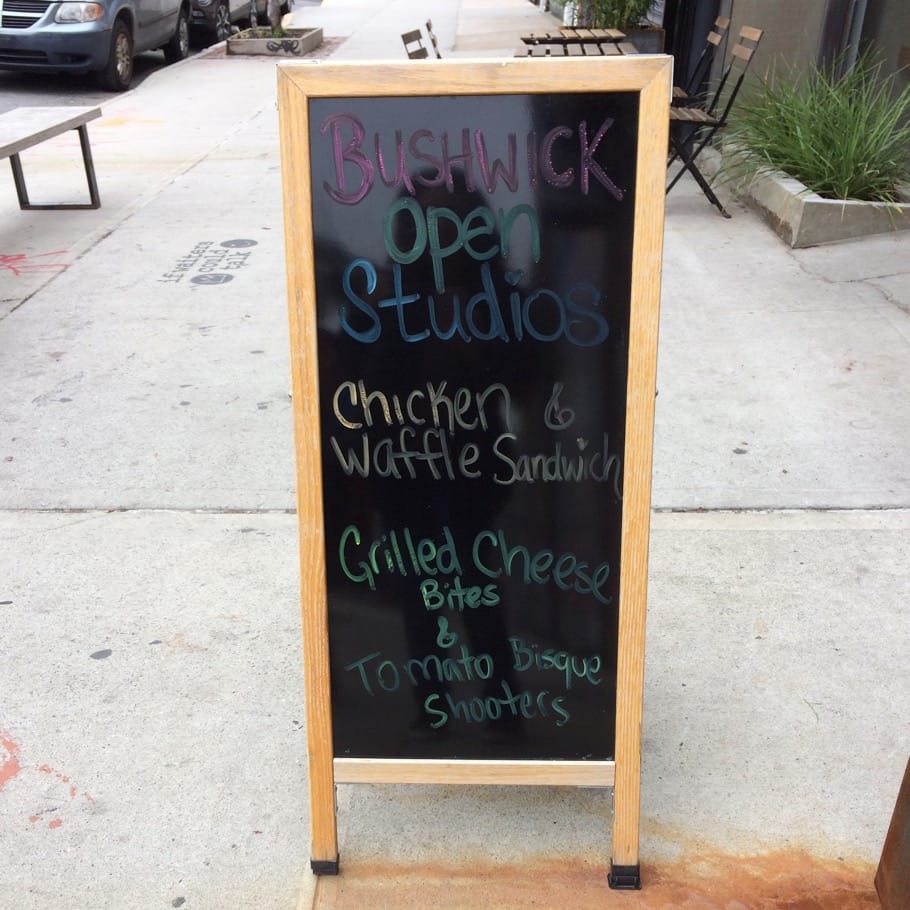 BUSHWICK
Open
Studios
Chicken &
Waffle Sandwich
Grilled Cheese
Bites
&
Tomato Bisque
Shooters
if walters
could
talk